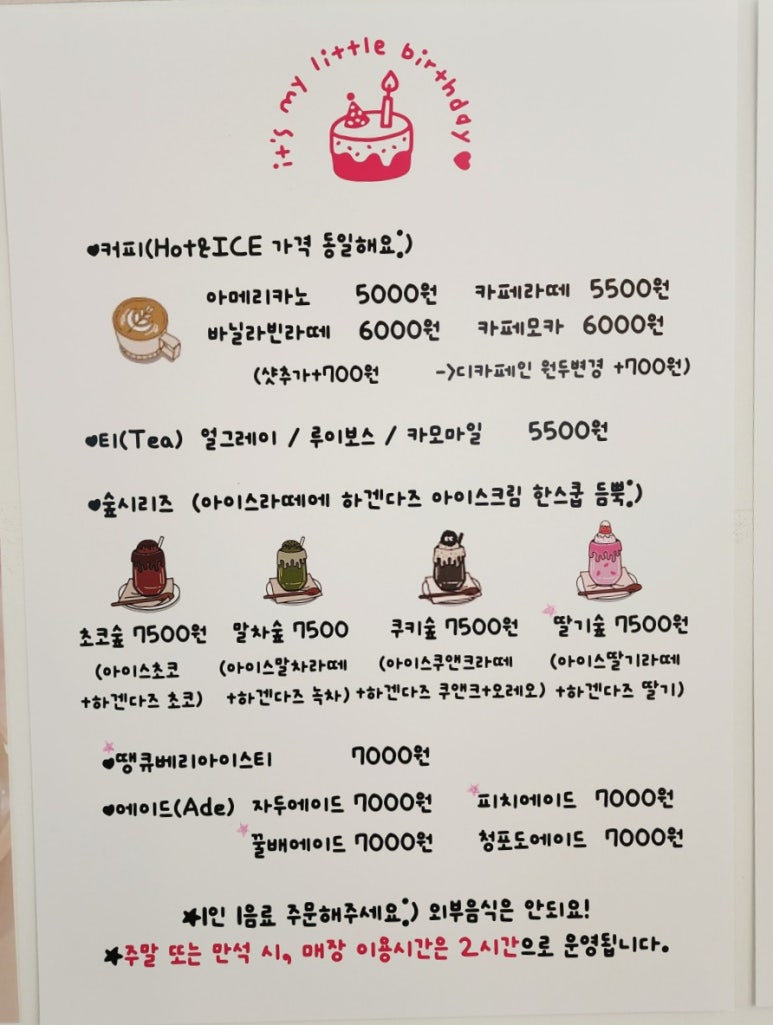 it's my little birthday♥
♥커피(Hot&ICE 가격 동일해요:)
아메리카노 5000원 카페라떼 5500원
바닐라빈라떼 6000원 카페모카 6000원
(샷추가+700원 ->디카페인 원두변경 +700원)
♥티(Tea) 얼그레이 / 루이보스 / 카모마일 5500원
♥숲시리즈 (아이스라떼에 하겐다즈 아이스크림 한스쿱 듬뿍:)
초코숲 7500원 말차숲 7500 쿠키숲 7500원 딸기숲 7500원
(아이스초코 (아이스말차라떼 (아이스쿠앤크라떼 (아이스딸기라떼
+하겐다즈 초코) +하겐다즈 녹차) +하겐다즈 쿠앤크+오레오) +하겐다즈 딸기)
♥땡큐베리아이스티 7000원
♥에이드(Ade) 자두에이드 7000원 피치에이드 7000원
꿀배에이드 7000원 청포도에이드 7000원
★1인 1음료 주문해주세요:) 외부음식은 안되요!
★주말 또는 만석 시, 매장 이용시간은 2시간으로 운영됩니다.